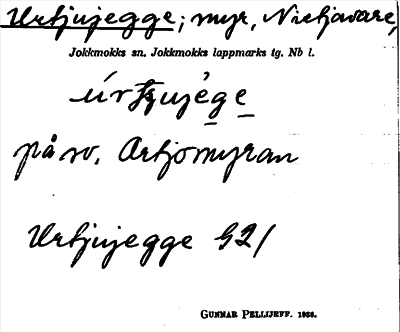 Urtjujegge; myr, Nietjavare,
Jokkmokks sn. Jokkmokks lappmarks tg. Nb l.
på sv. Artjomyran
Urtjujegge G2/
GUNNAR PELLIJEFF. 1938.